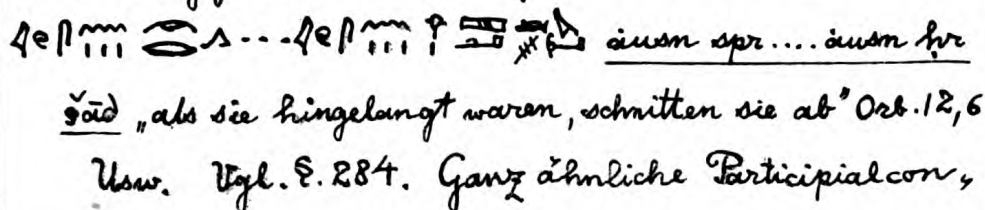 ȧusn spr .... ȧusn ḥr
„als sie hingelangt waren, schnitten sie ab“ Orb. 12,6
Usw. Vgl. §. 284. Ganz ähnliche Participialcon„